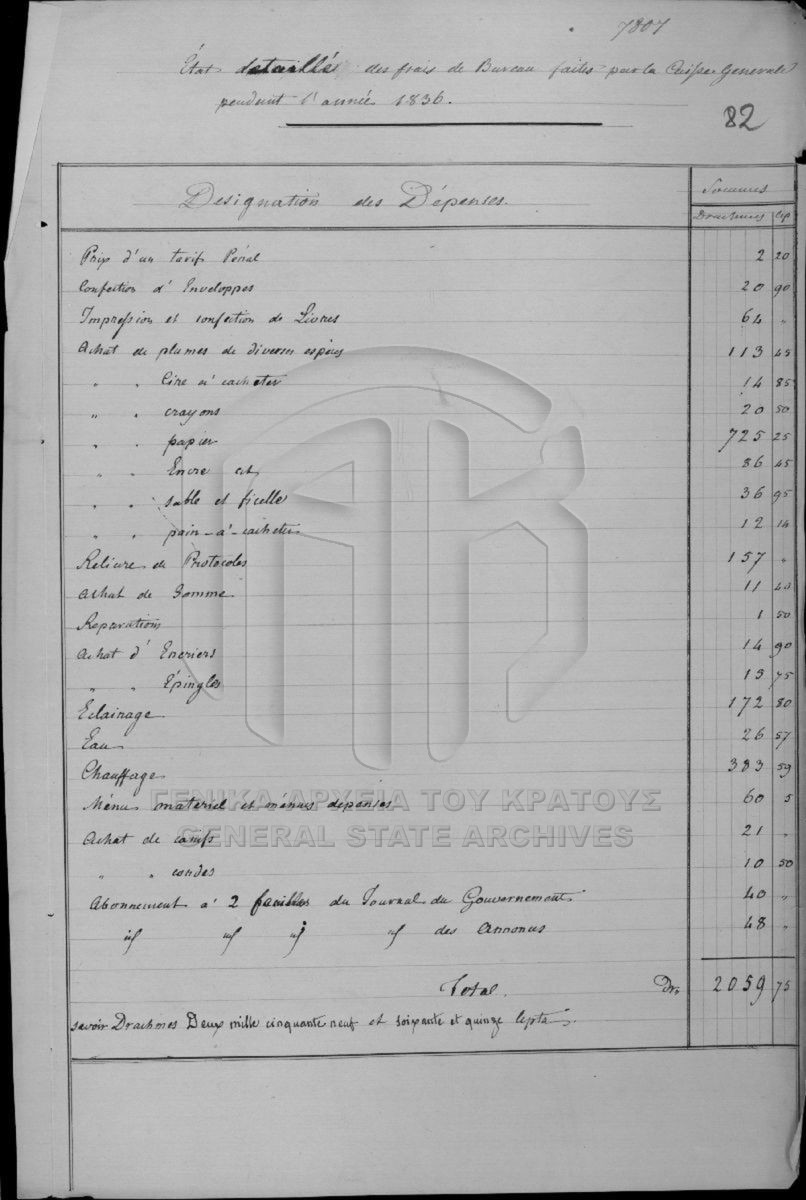 7807
État détaillé des frais de Bureau faites par la Caisse Generale
pendant l'année 1836.
82
Designation des Dépenses.
Sommes
Drachmes lep
Prix d'un tarif Pénal 2 20
Confection d'Enveloppes 20 90
Impression et confection de Livres 64 "
Achat de plumes de diverses espèces 113 45
" " Cire à cacheter 14 85
" " crayons 20 50
" " papier 725 25
" " Encre et 86 45
" " sable et ficelle 36 95
" " pain-à-cacheter 12 14
Reliure de Protocoles 157 "
Achat de Gomme 11 40
Reparations 1 50
Achat d'Encriers 14 90
" " Épingles 13 75
Eclairage 172 80
Eau 26 57
Chauffage 383 59
Ménu materiel et ménues dépenses 60 5
ΓΕΝΙΚΑ ΑΡΧΕΙΑ ΤΟΥ ΚΡΑΤΟΥΣ
GENERAL STATE ARCHIVES
Achat de canifs 21 "
" " cordes 10 50
Abonnement à 2 feuilles du Journal du Gouvernement 40 "
id id id id des Annonces 48 "
Total. Dr. 2059 75
savoir Drachmes Deux mille cinquante neuf et soixante et quinze lepta.